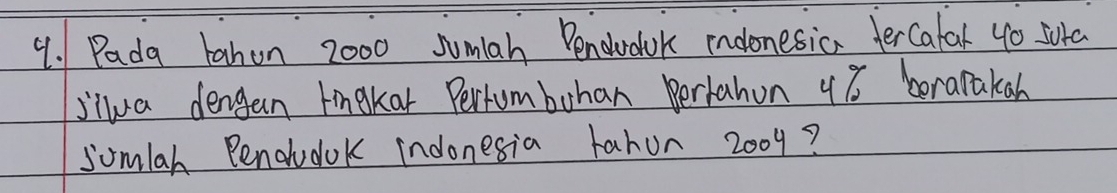 4. Pada tahun 2000 Jumlah Penduduk indonesia tercatat 40 juta
jiwa dengan tingkat Pertumbuhan Pertahun 4% berapakah
jumlah Penduduk indonesia tahun 2004?